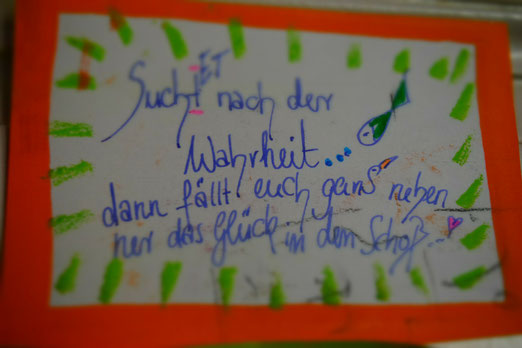 ET
Sucht nach der
Wahrheit...
dann fällt euch gans neben
her das Glück in den Schoß...